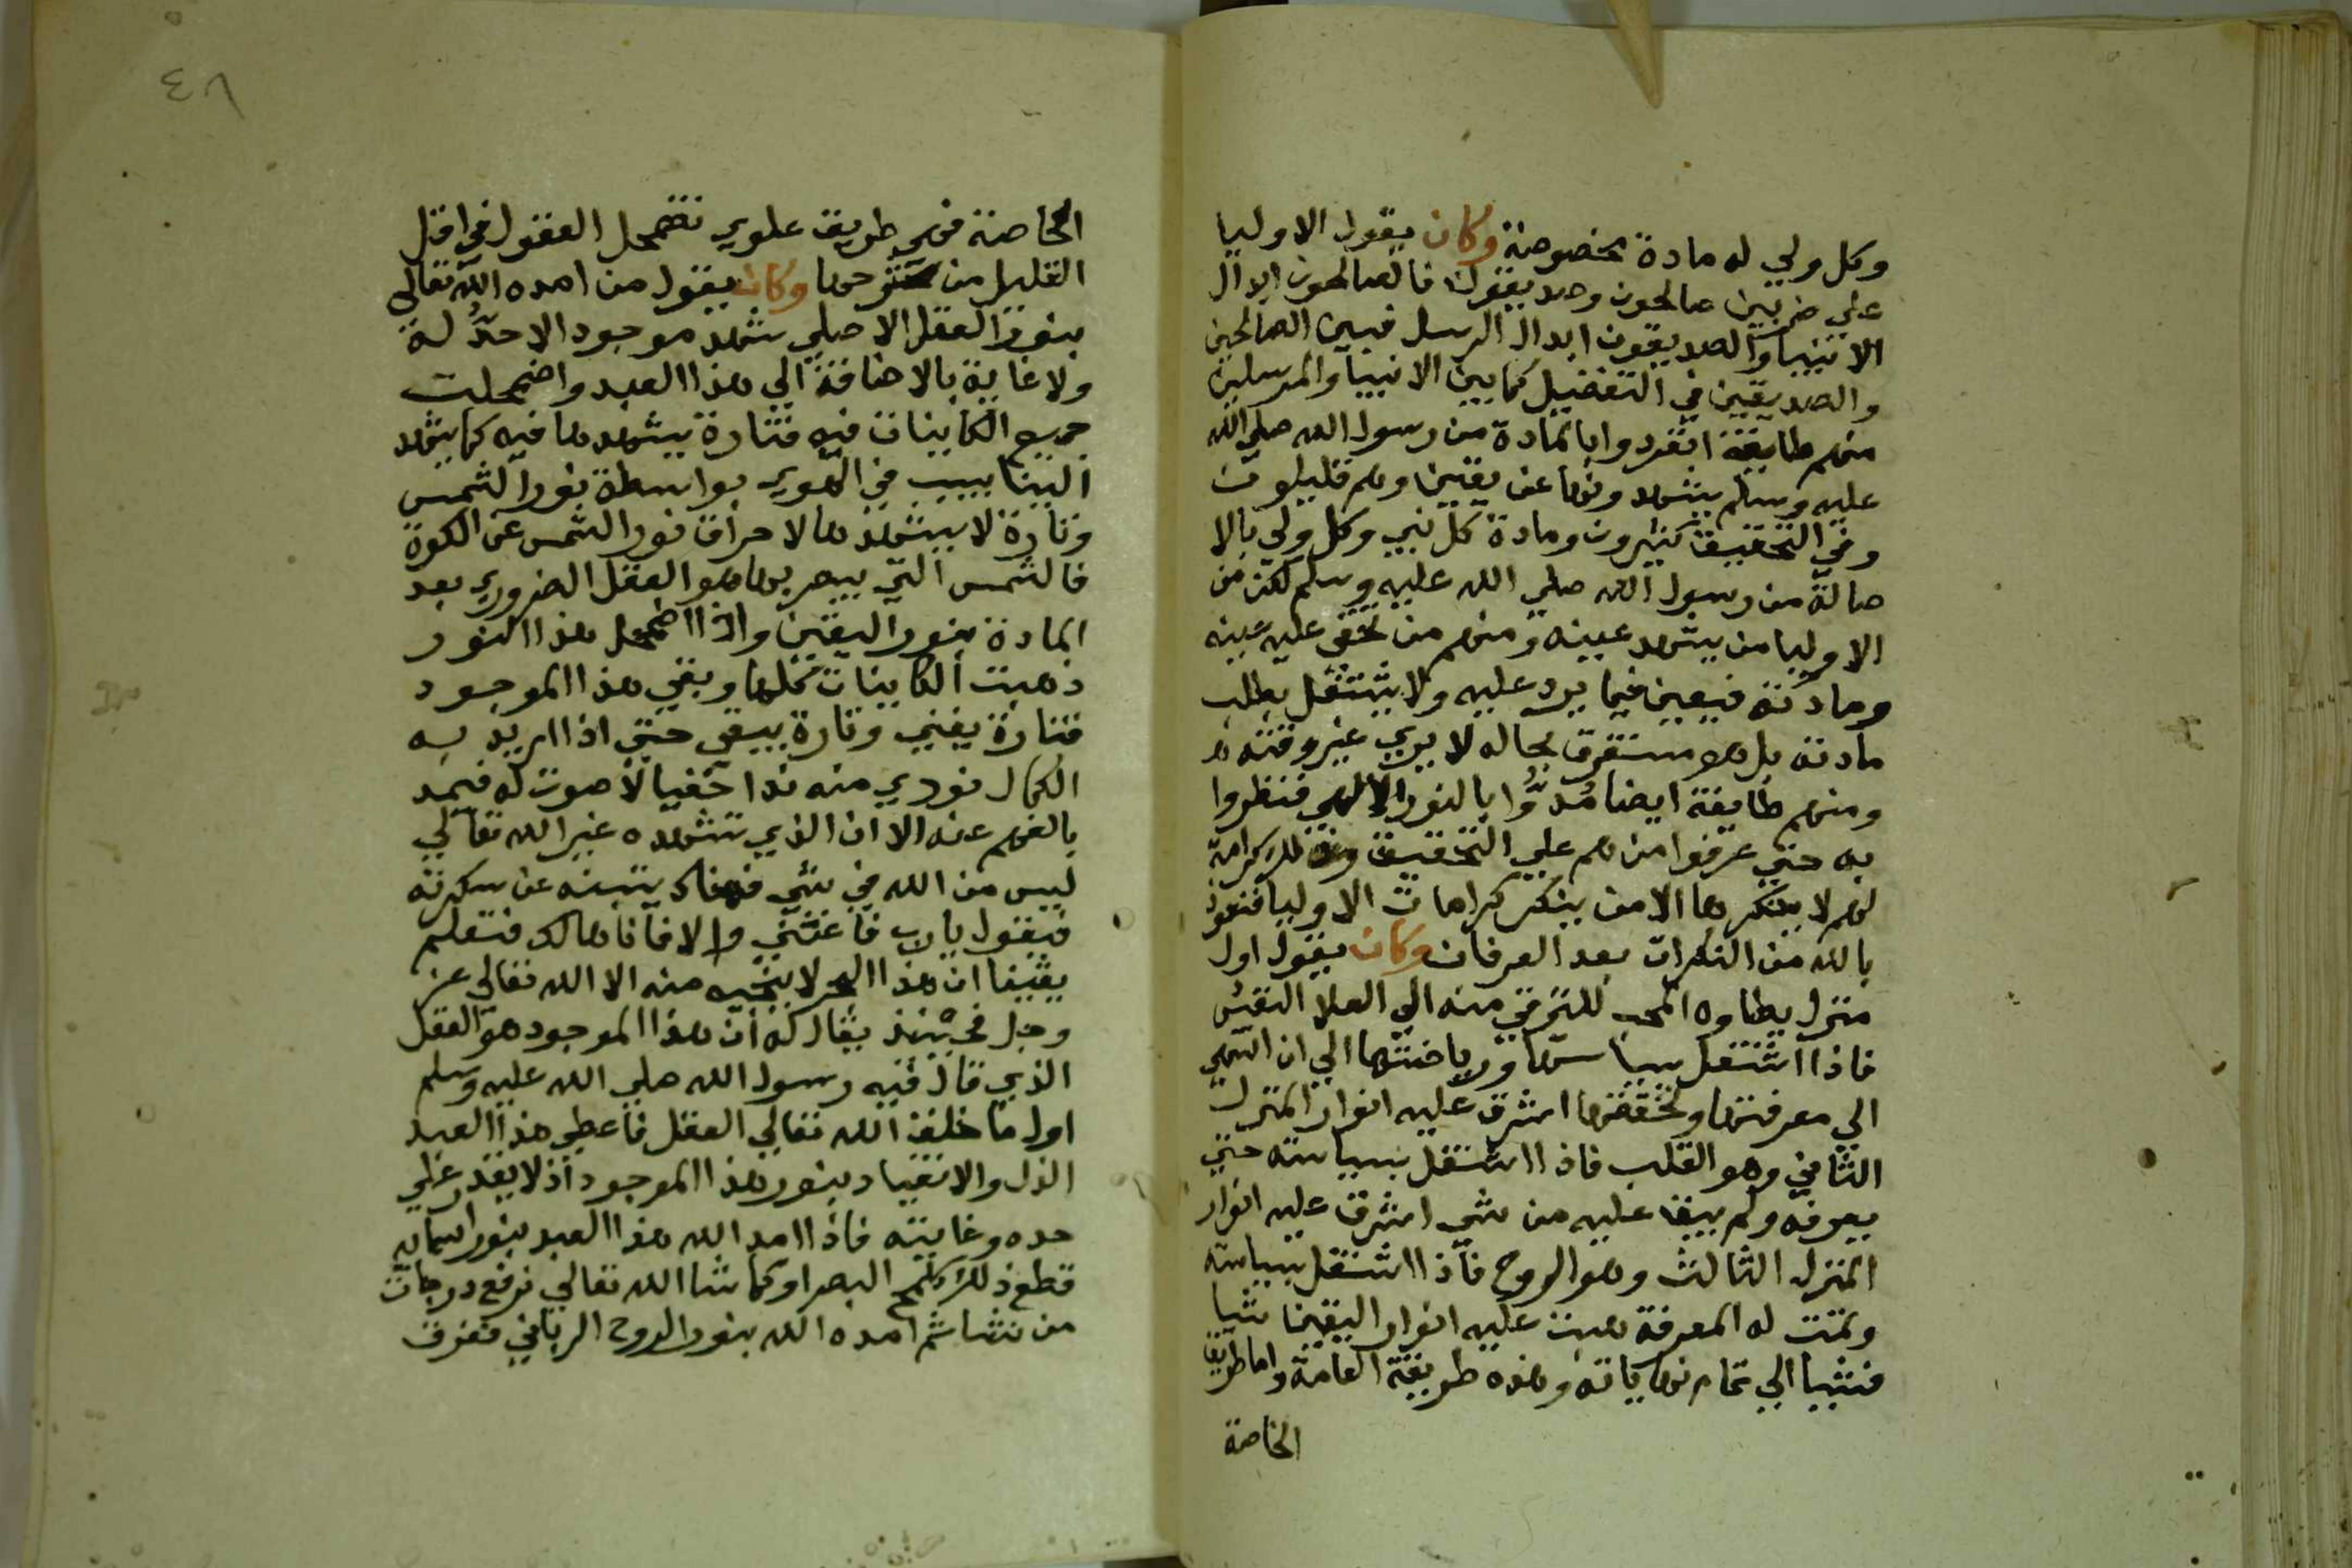 وكل ولي له مادة مخصوصة وكان يقول الاوليا
علي ضربين صالحون وصديقون فالصالحون ابدال
الانبيا والصديقون ابدال الرسل فبين الصالحين
والصديقين في التفضيل كما بين الانبيا والمرسلين
منهم طايفة انفردوا بالمادة من رسول الله صلي الله
عليه وسلم يشهدونها عن يقين وهم قليلون
وفي التحقيق كثيرون ومادة كل نبي وكل ولي بالا
صالة من رسول الله صلي الله عليه وسلم لكن من
الاوليا من يشهد عينه ومنهم من تخفي عليه عينه
ومادته فيفني فيما يرد عليه ولا يشتغل بطلب
مادته بل هو مستغرق بحاله لا يري غير وقته
ومنهم طايفة ايضا مُدّوا بالنور الالهي فنظروا
به حتي عرفوا من هم علي التحقيق وذلك كرامة
لهم لا ينكرها الا من ينكر كرامات الاوليا فنعوذ
بالله من النكران بعد العرفان وكان يقول اول
منزل يطاوه المحب للترقي منه الي العلا النفس
فاذا اشتغل بسياستها ورياضتها الي ان انتهي
الي معرفتها وتحققها اشرق عليه انوار المنزل
الثاني وهو القلب فاذا اشتغل بسياسته حتي
يعرفه ولم يبق عليه من شي اشرق عليه انوار
المنزل الثالث وهو الروح فاذا اشتغل بسياسته
وتمت له المعرفة هبت عليه انوار اليقين شيا
فشيا الي تمام نهاياته وهذه طريقة العامة واما طريق
الخاصة
٤٨
الخاصة فهي طريق علوي تضمحل العقول في اقل
القليل من شرحها وكان يقول من امده الله تعالي
بنور العقل الاصلي شهد موجود الاحدَّ له
ولا غاية بالاضافة الي هذا العبد واضمحلت
جميع الكاينات فيه فتارة يشهدها فيه كما يشهد
البنابيب في الهوي بواسطة نور الشمس
وتارة لا يشهدها لانحراف نور الشمس عن الكوة
فالشمس التي يبصر بها هو العقل الضروري بعد
المادة بنور اليقين واذا اضمحل هذا النور
ذهبت الكاينات كلها وبقي هذا الموجود
فتارة يفني وتارة يبقي حتي اذا اريد به
الكمال نودي منه ندا خفيا لا صوت له فيمد
بالفهم عنه الا ان الذي تشهده غير الله تعالي
ليس من الله في شي فهناك ينتبه عن سكرته
فيقول يا رب فاغثني والا فانا هالك فيعلم
يقينا ان هذا البحر لا ينجيه منه الا الله تعالي عز
وجل فحينئذ يقال له ان هذا الموجود هو العقل
الذي قال فيه رسول الله صلي الله عليه وسلم
اول ما خلق الله تعالي العقل فاعطي هذا العبد
الذل والانقياد بنور هذا الموجود اذ لا يقدر علي
حده وغايته فاذا امد الله هذا العبد بنور اسمايه
قطع ذلك كلمح البصر او كما شا الله تعالي نرفع درجات
من نشا ثم امده الله بنور الروح الرباني فعرف